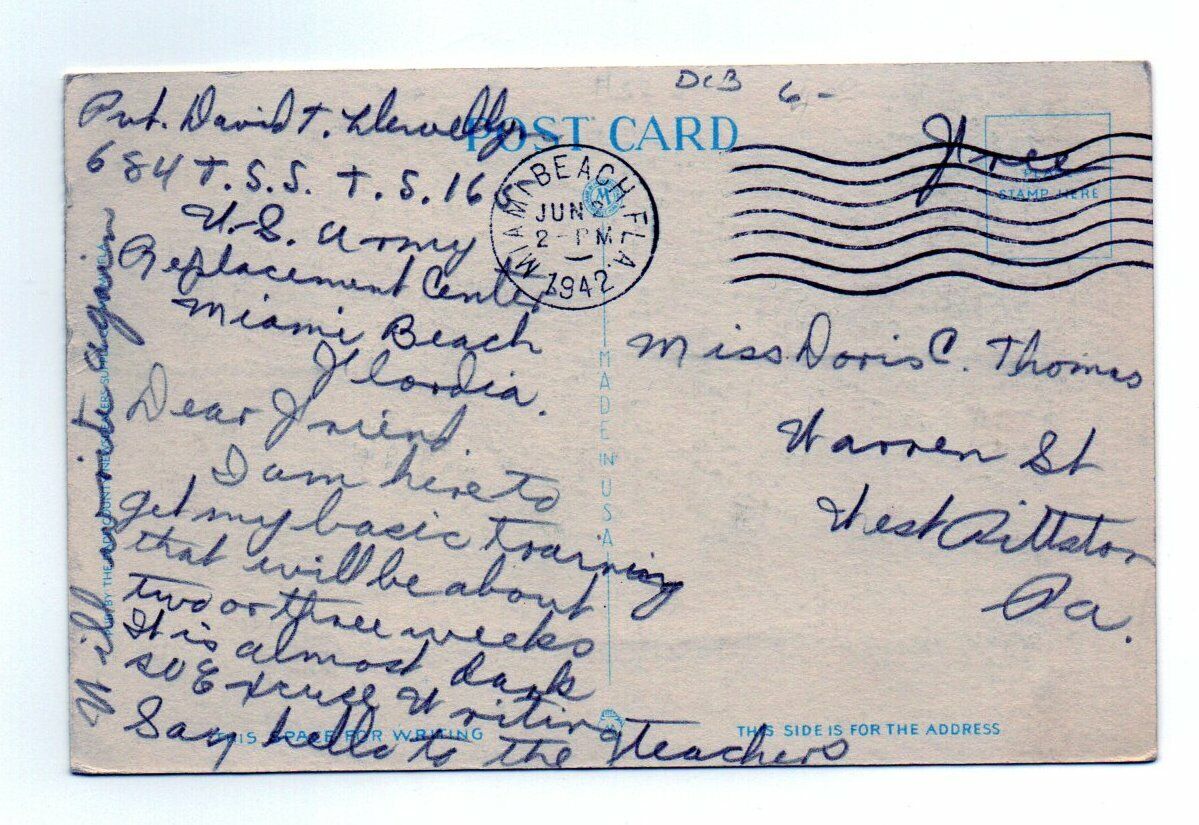 DCB 6-
POST CARD
Pvt. David T. Llewellyn
684 T.S.S. T.S. 16
U.S. Army
Replacement Center
Miami Beach
Flordia.
Dear Friend
I am here to
get my basic training
that will be about
two or three weeks
It is almost dark
so Excuse Writing
Say hello to the teachers
Will write again
MIAMI BEACH FLA.
JUN
2-PM
1942
Free
STAMP HERE
Miss Doris C. Thomas
Warren St
West Pittston
Pa.
MADE IN U.S.A.
THIS SPACE FOR WRITING
THIS SIDE IS FOR THE ADDRESS